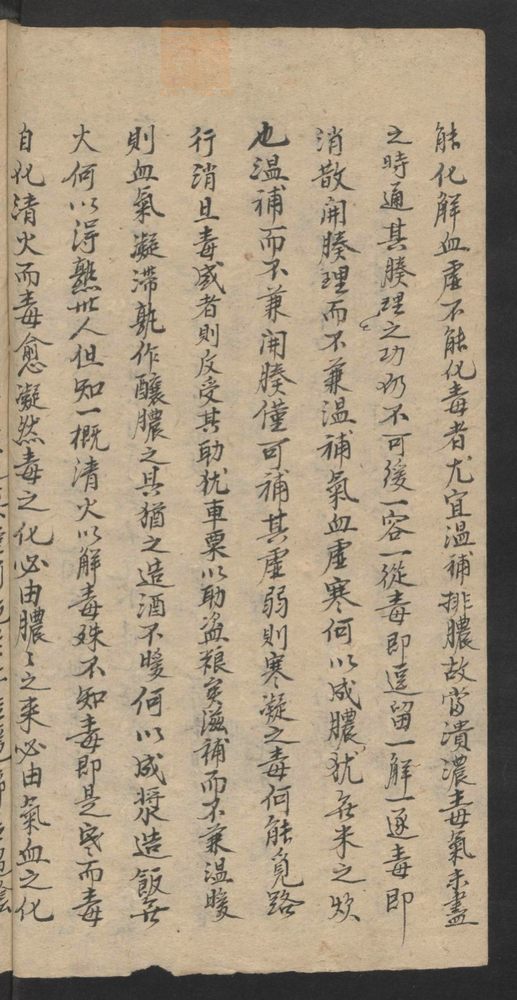 能化解血虛不能化毒者尤宜温補排膿故當潰濃毒氣未盡
之時通其腠理之功仍不可緩一容一從毒即逗留一解一逐毒即
消散開腠理而不兼温補氣血虛寒何以成膿犹無米之炊
也温補而不兼開腠僅可補其虛弱則寒凝之毒何能覓路
行消且毒盛者則反受其助犹車粟以助盗粮矣滋補而不兼温暖
則血氣凝滞孰作釀膿之具猶之造酒不暖何以成漿造飯無
火何以得熟世人但知一概清火以解毒殊不知毒即是寒而毒
自化清火而毒愈凝然毒之化必由膿〻之来必由氣血之化